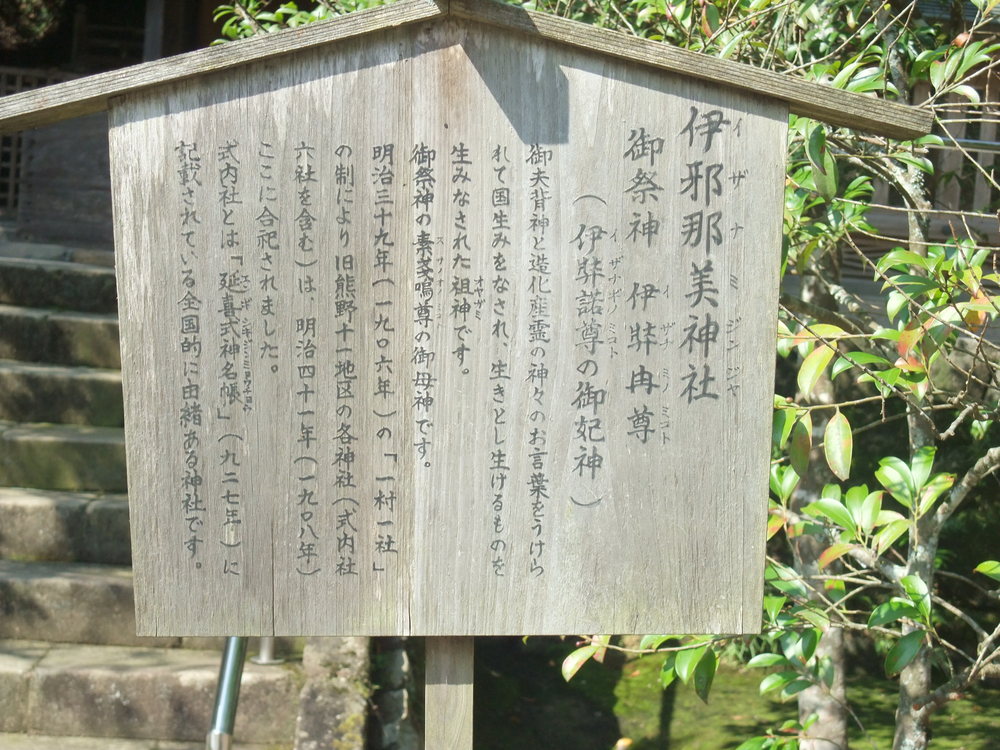 伊邪那美神社
イザナミジンジャ
御祭神 伊弉冉尊
イザナミノミコト
（伊弉諾尊の御妃神）
イザナギノミコト
御夫背神と造化産霊の神々のお言葉をうけら
れて国生みをなされ、生きとし生けるものを
生みなされた祖神です。
オヤガミ
御祭神の素戔嗚尊の御母神です。
スサノオノミコト
明治三十九年（一九〇六年）の「一村一社」
の制により旧熊野十一地区の各神社（式内社
六社を含む）は、明治四十一年（一九〇八年）
ここに合祀されました。
式内社とは「延喜式神名帳」（九二七年）に
エンギシキジンミョウチョウ
記載されている全国的に由緒ある神社です。